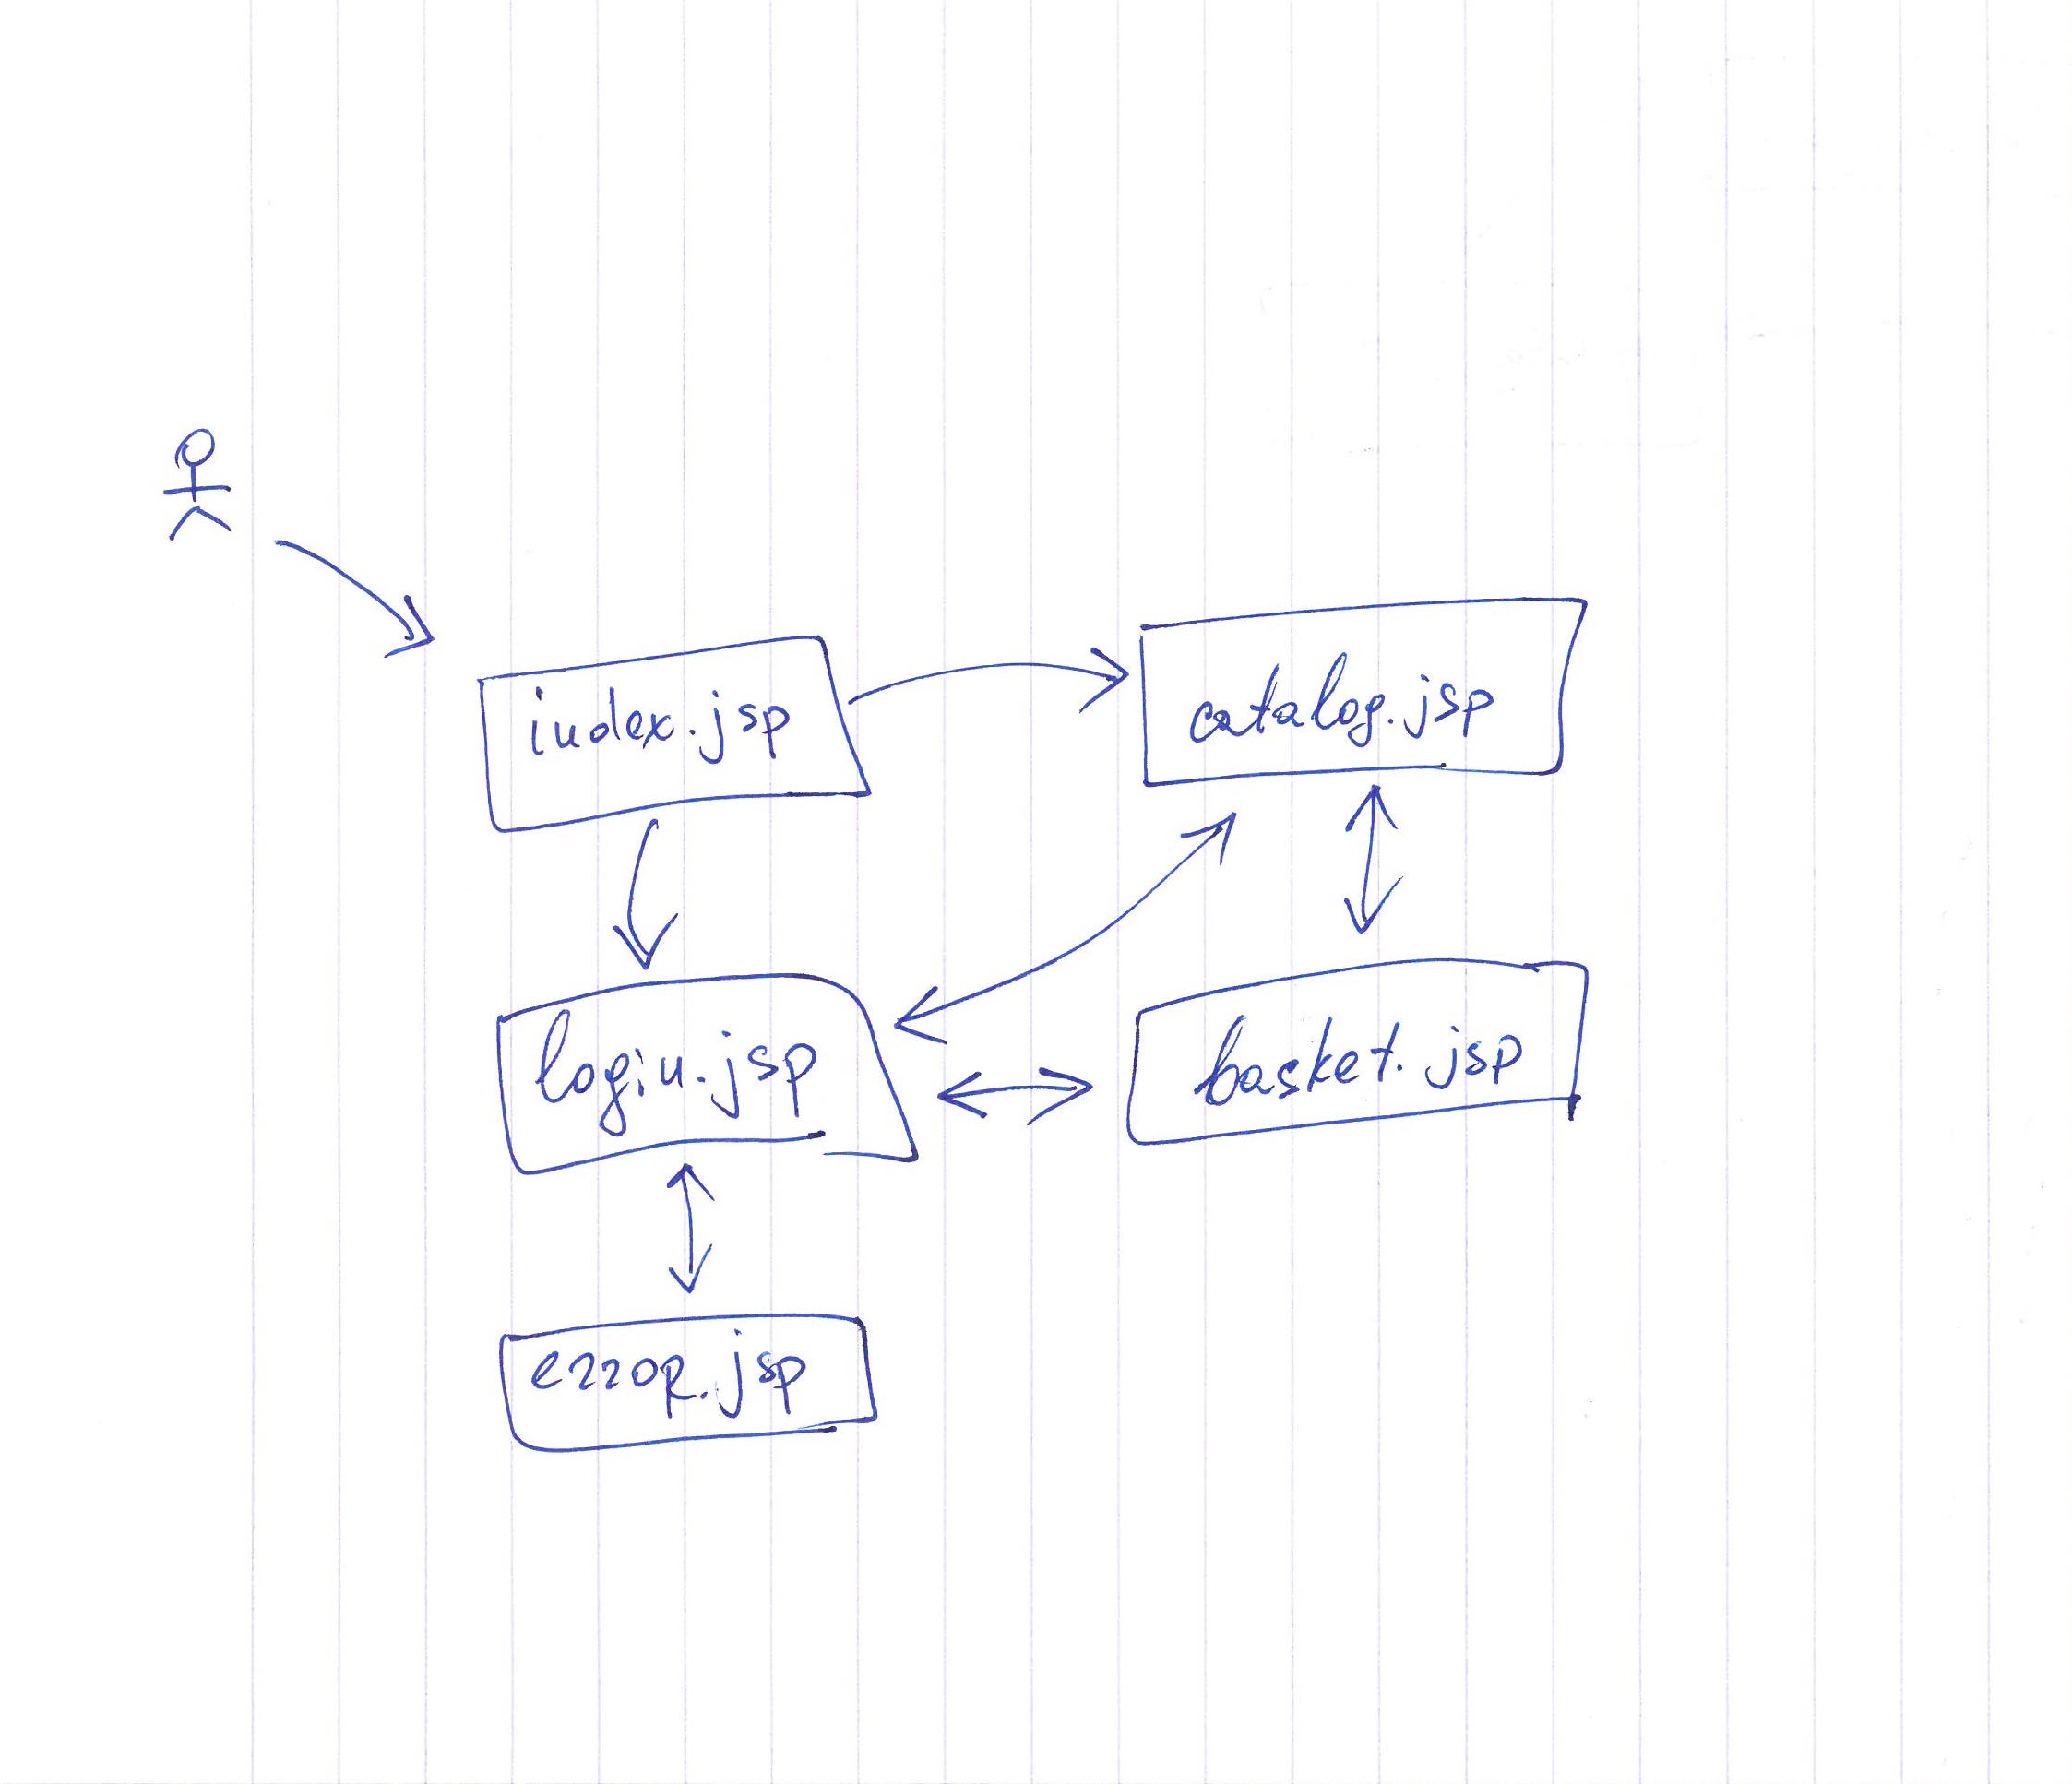 index.jsp
catalog.jsp
login.jsp
basket.jsp
error.jsp